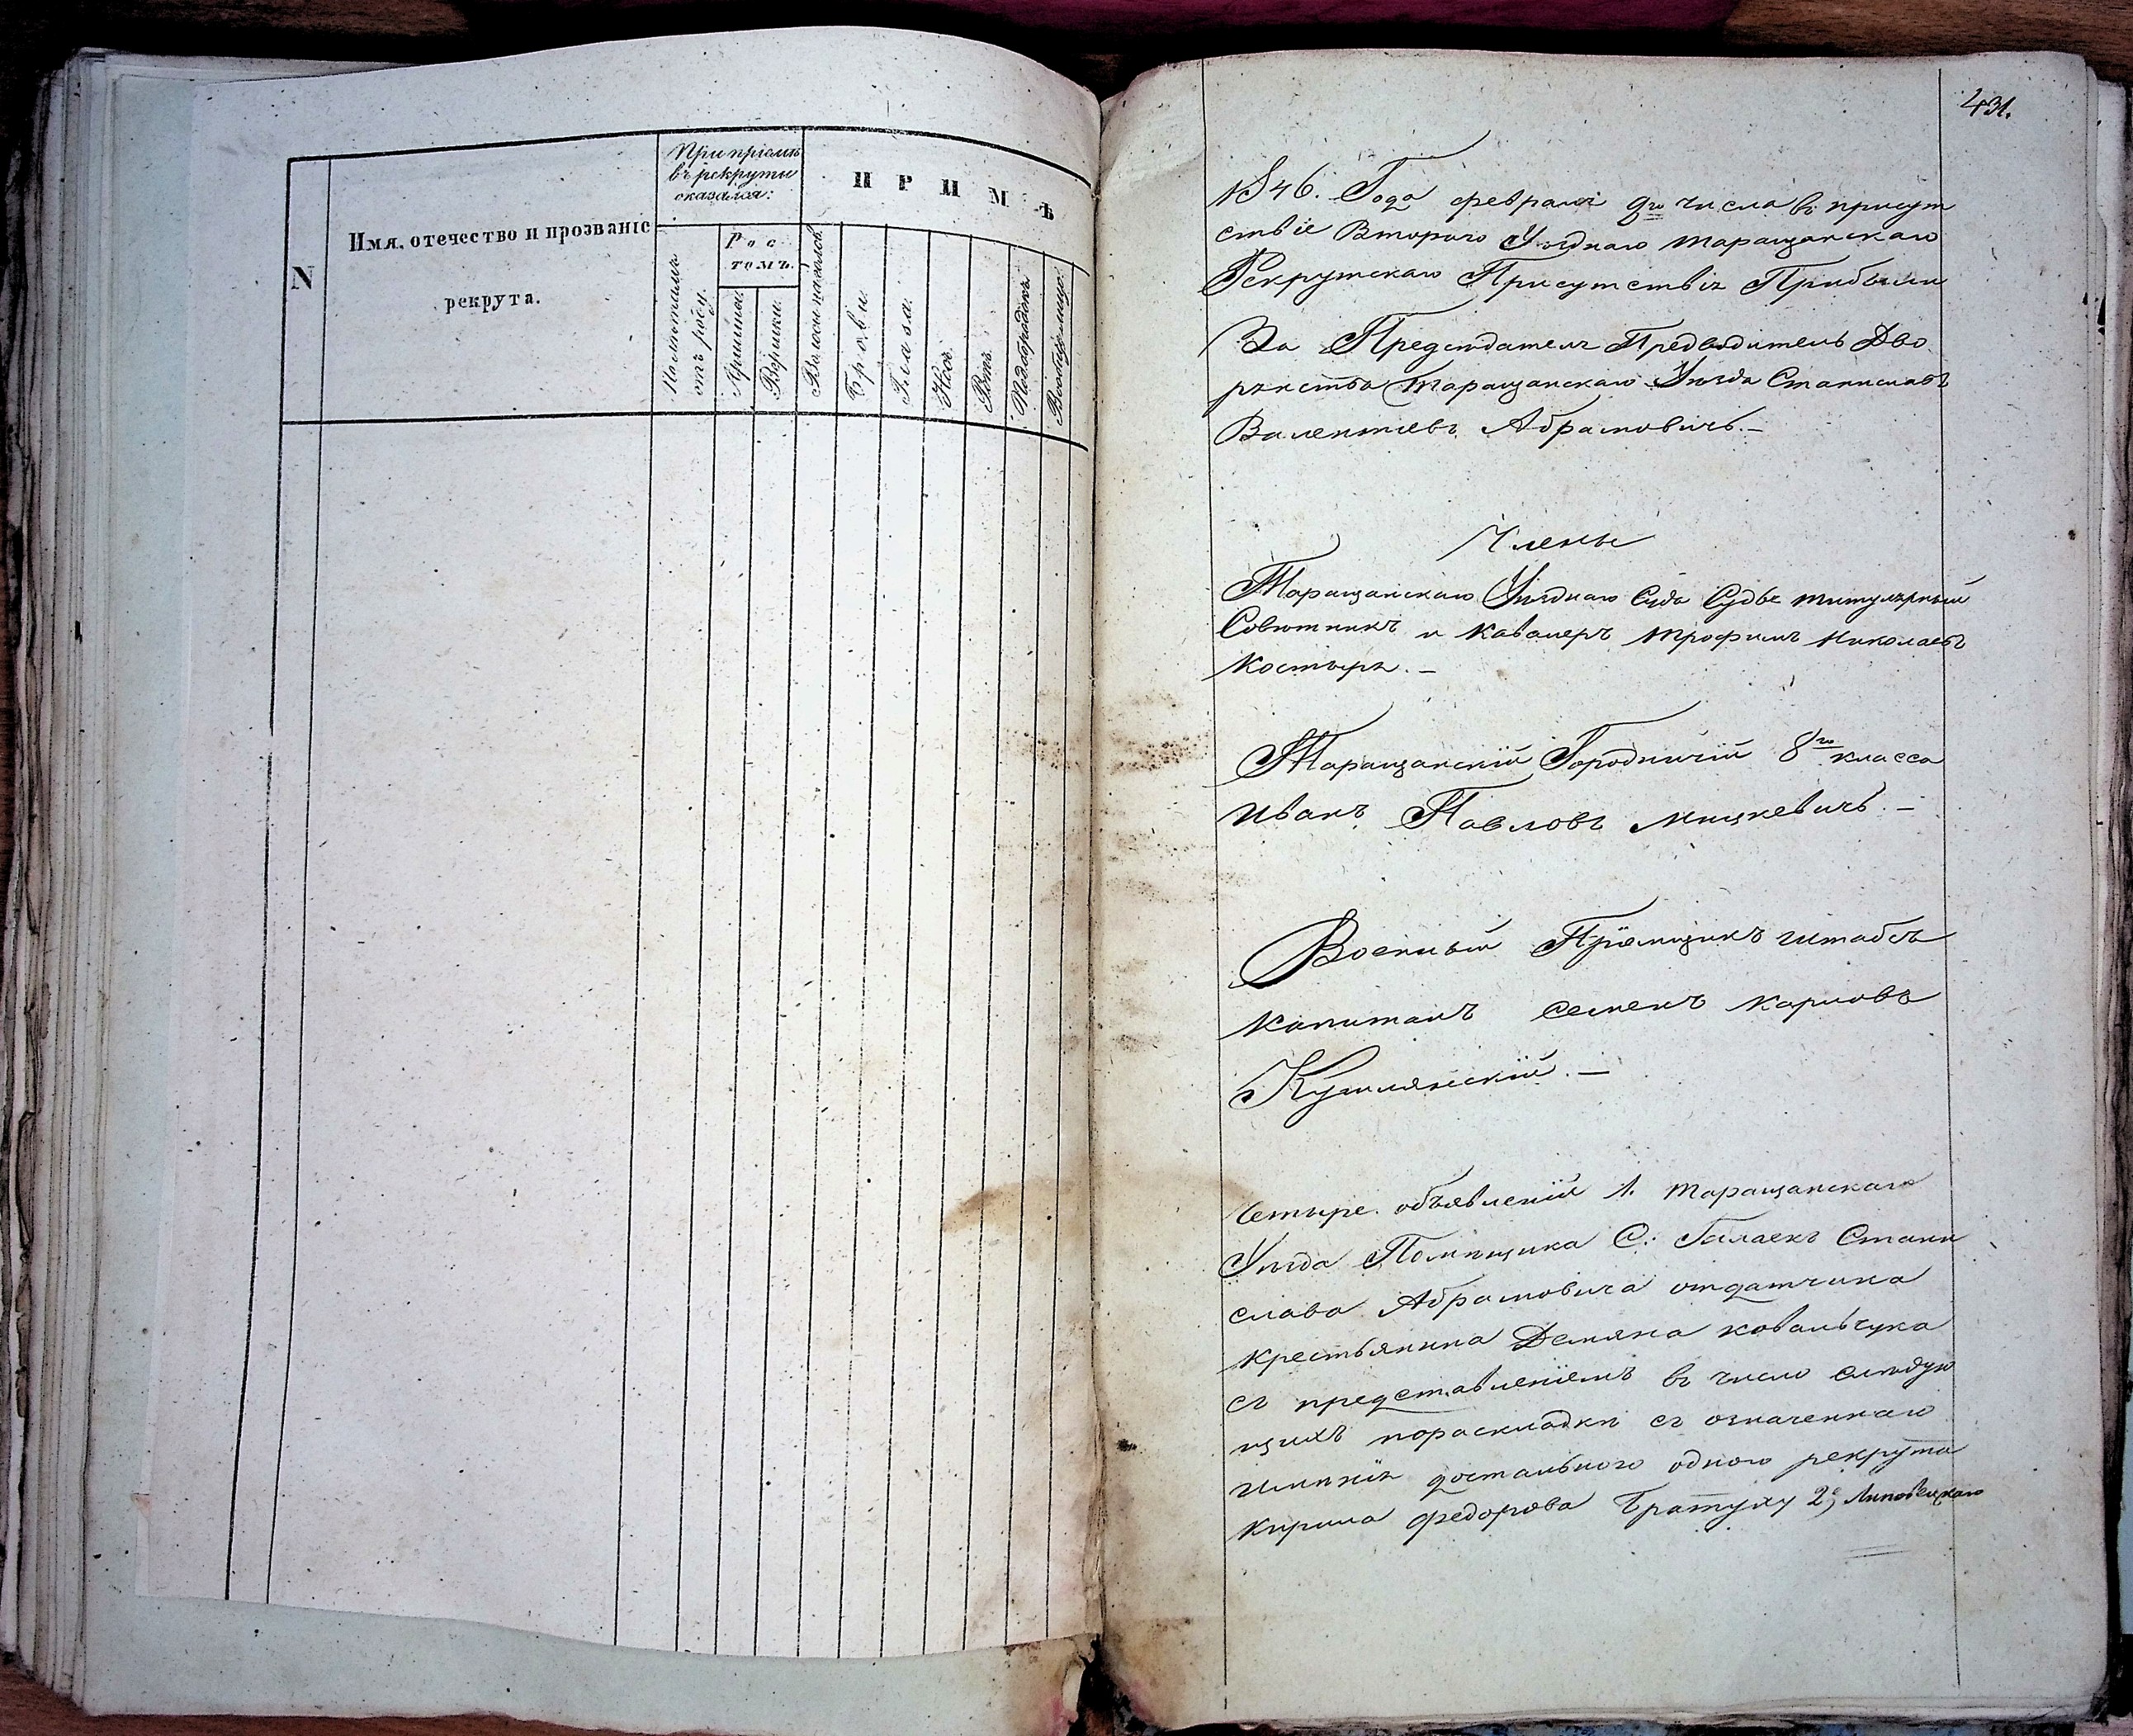 N
Имя, отечество и прозваніе
рекрута.
При пріемѣ
въ рекруты
оказался:
Ро с
томъ.
Аршины.
Вершки.
П Р И М Ѣ
Брови.
Глаза.
Носъ.
Ротъ.
Подбородокъ.
Вообще лицо.
431.
1846. Года февраля 9го числа въ присут
ствіе Втораго Уѣзднаго Таращанскаго
Рекрутскаго Присутствія Прибыли
За Предсѣдателя Предводитель Дво
рянства Таращанскаго Уѣзда Станиславъ
Валентіевъ Абрамовичъ. –
Члены
Таращанскаго Уѣзднаго Суда Судья титулярный
Совѣтникъ и Кавалеръ Трофимъ Николаевъ
Костыря. –
Таращанскій Городничій 8го класса
Иванъ Павловъ Мицкевичъ. –
Военный Пріемщикъ Штабсъ
Капитанъ Семенъ Карповъ
Четыре объявленій 1. Таращанскаго
Уѣзда Помѣщика С: Стани
слава Абрамовича отдатчика
крестьянина Демяна Ковальчука
съ представленіемъ въ число слѣдую
щихъ пораскладкѣ съ означеннаго
имѣнія достальнаго одного рекрута
Кирила Федорова 2, Липовецкаго